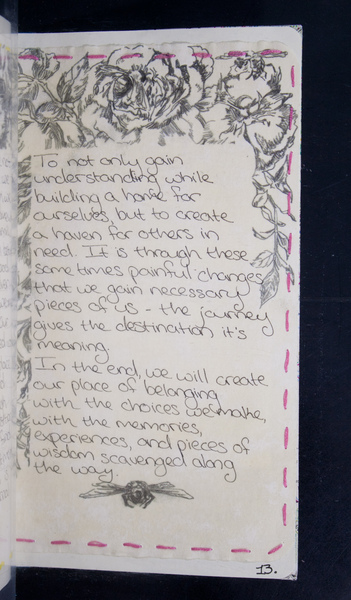 To not only gain
understanding while
building a home for
ourselves, but to create
a haven for others in
need. It is through these
sometimes painful changes
that we gain necessary
pieces of us - the journey
gives the destination it's
meaning.
In the end, we will create
our place of belonging
with the choices we make,
with the memories,
experiences, and pieces of
wisdom scavenged along
the way.
13.